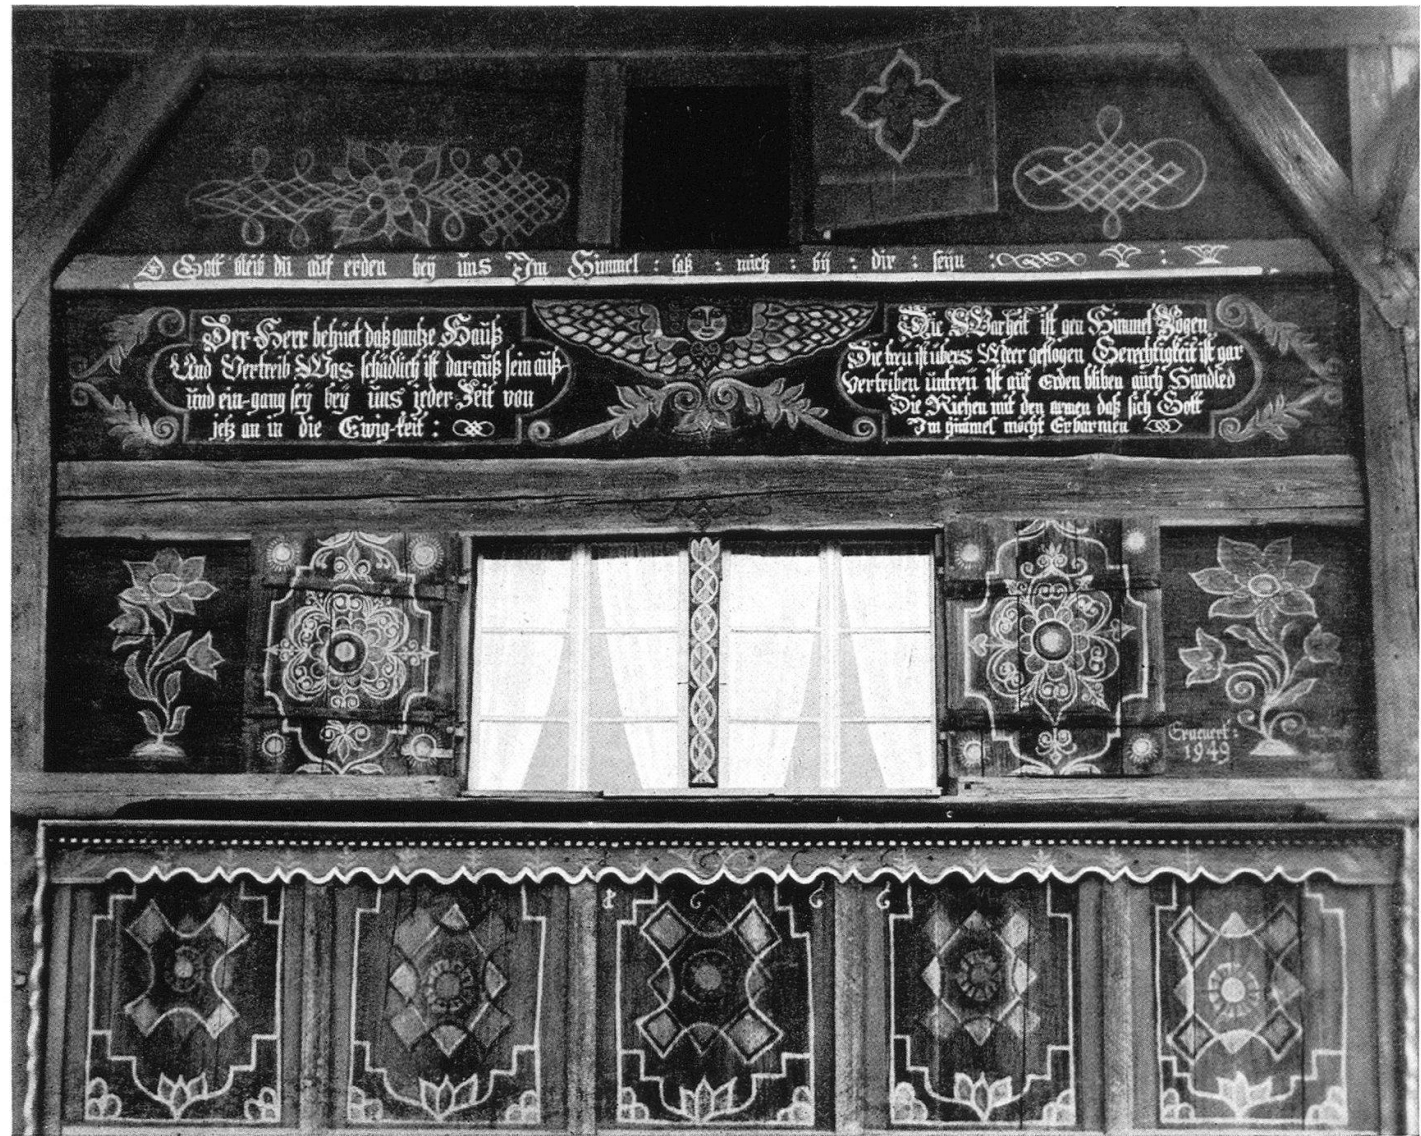 O Gott bleib dū auf erden beÿ ūns Im Himmel : laß : mich : bÿ : dir : seÿn :
Der Herr behüet daß gantze Hauß
Und Vertreib Was schädlich ist darauß sein auß-
und ein-gang seÿ beÿ ūns jeder Zeit von
jetz an in die Ewig-keit :
Die Warheit ist gen Himmel Zogen
Die treu ist übers Meer geflogen Gerechtigkeit ist gar
vertriben ūntreü ist auf erden bliben auch
Die Richen mit den armen daß sich Gott
Im himmel möcht Erbarmen
Erneuert:
1949